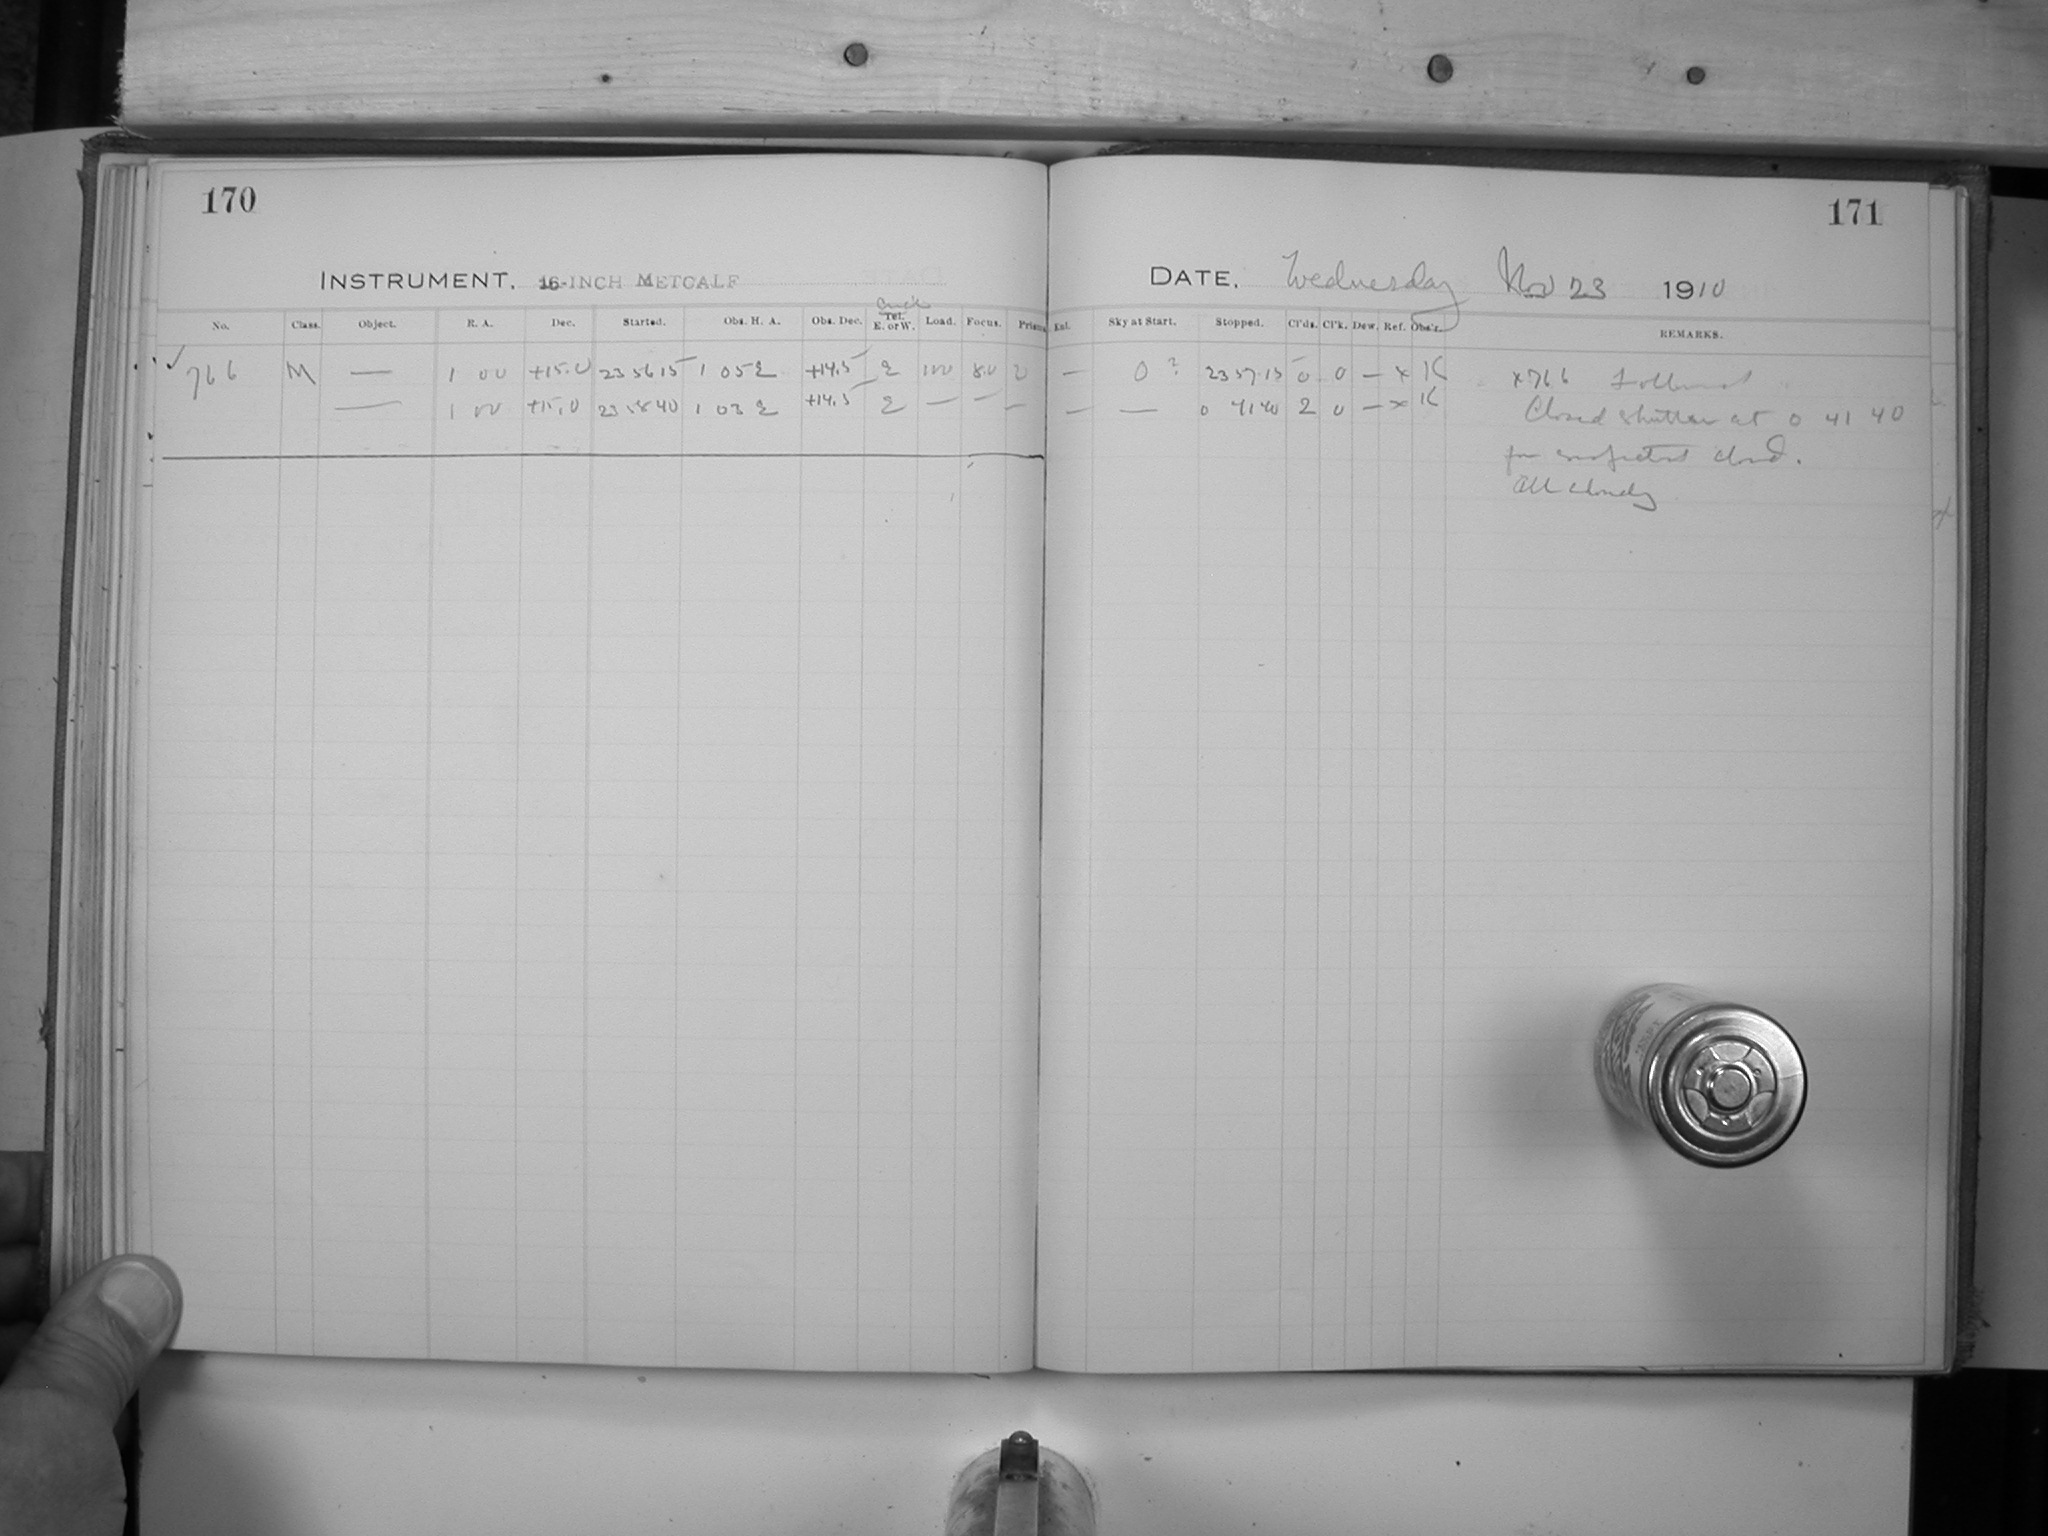 170
171
INSTRUMENT. 16-INCH METCALF
DATE. Wednesday Nov 23 1910
No. Class. Object. R. A. Dec. Started. Obs. H. A. Obs. Dec. Circle Tel. E. or W. Load. Focus. Prism. Ext. Sky at Start. Stopped. Cl'ds. Cl'k. Dew. Ref. Obs'r. REMARKS.
✓ 766 M — 1 00 +15.0 23 56 15 1 05 E +14.5 E 100 8.0 0 — 0 ? 23 57 15 0 0 — x K x766 Followed
— 1 00 +15.0 23 58 40 1 03 E +14.5 E — — — — — 0 41 40 2 0 — x K Closed shutter at 0 41 40
for cloud.
All cloudy